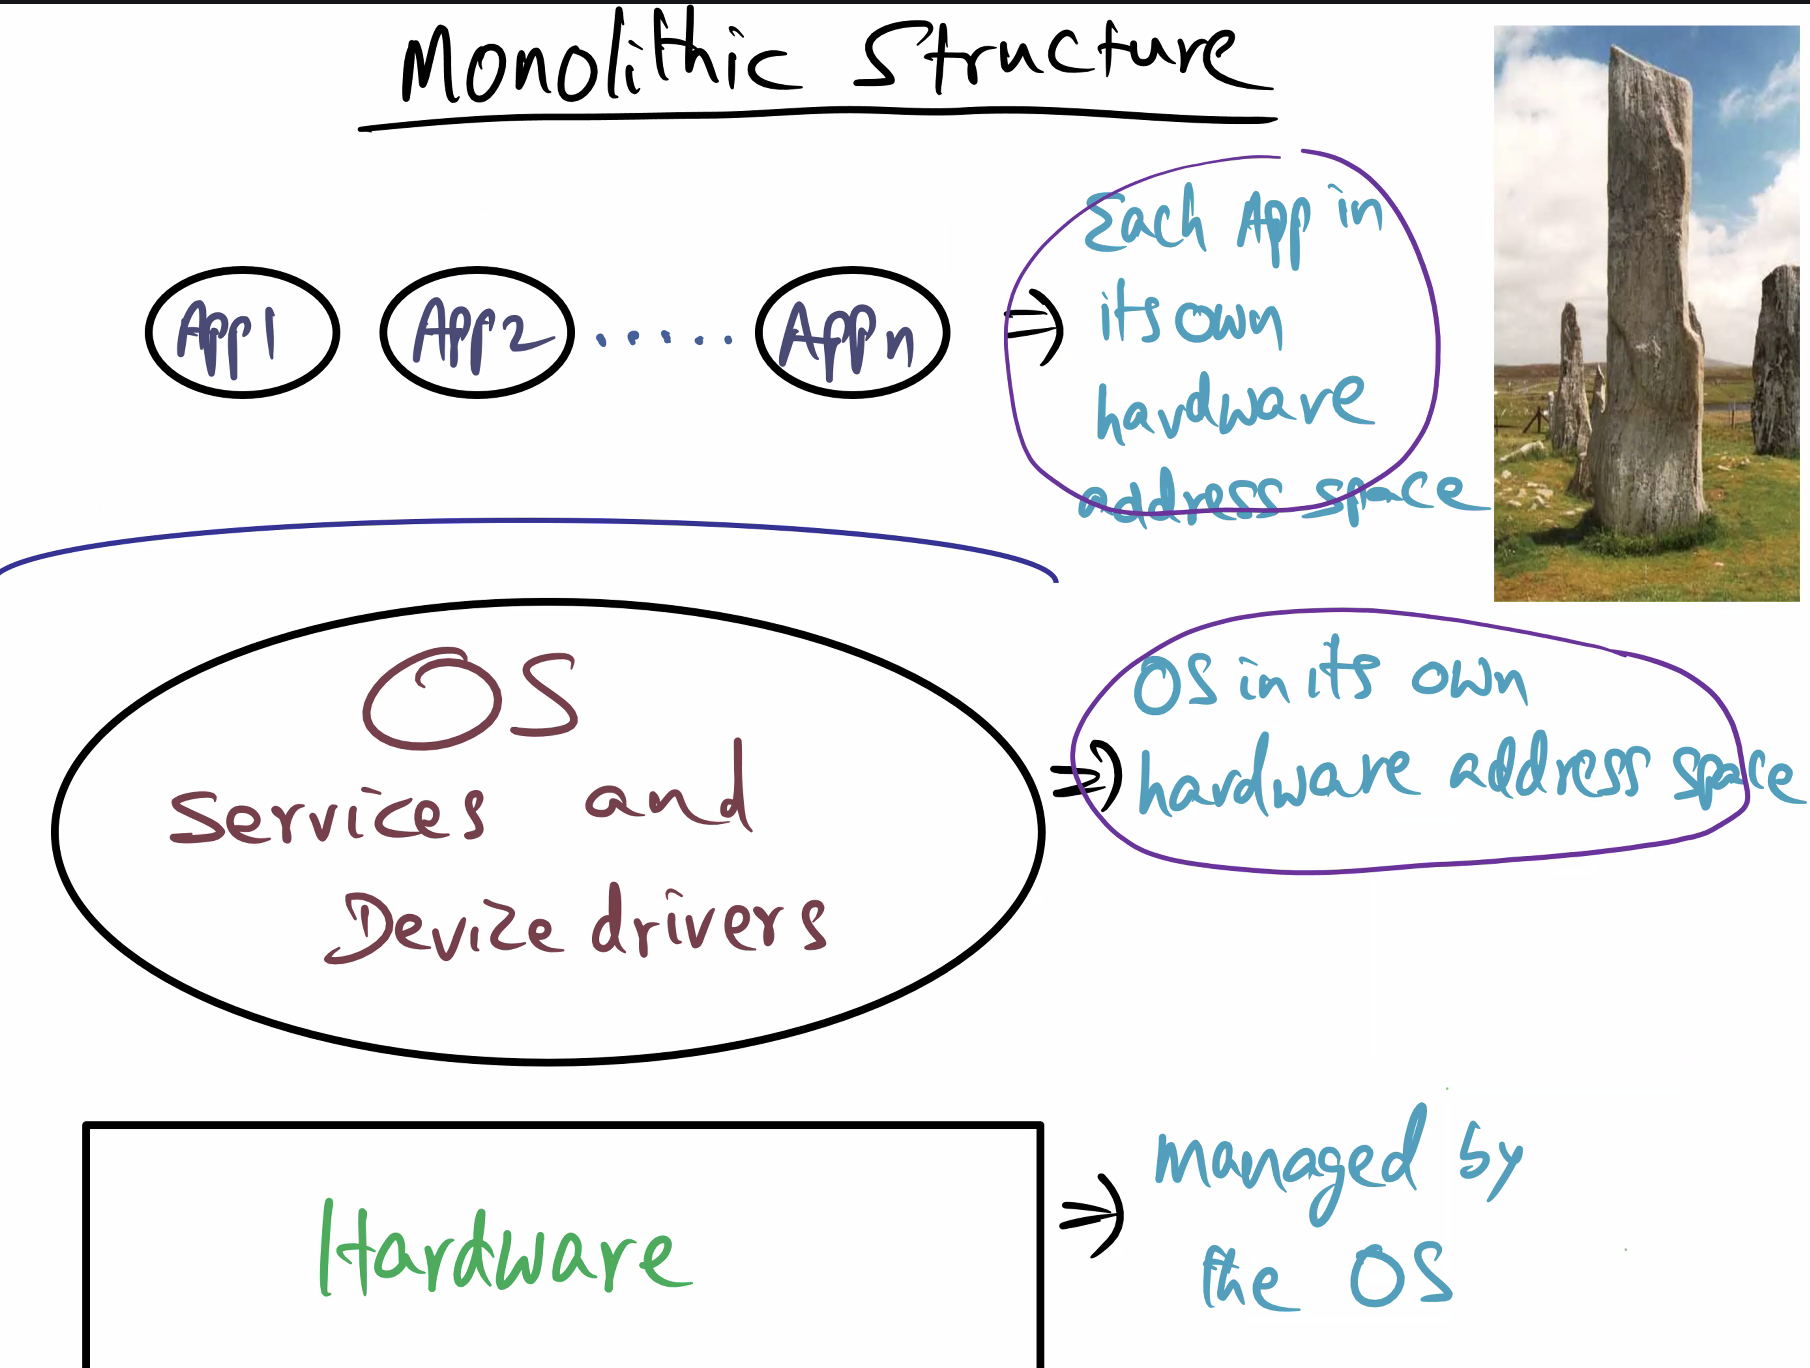 Monolithic Structure
App1 App2 ..... App n
⇒ Each App in
its own
hardware
address space
OS
Services and
Device drivers
⇒ OS in its own
hardware address space
Hardware
⇒ managed by
the OS